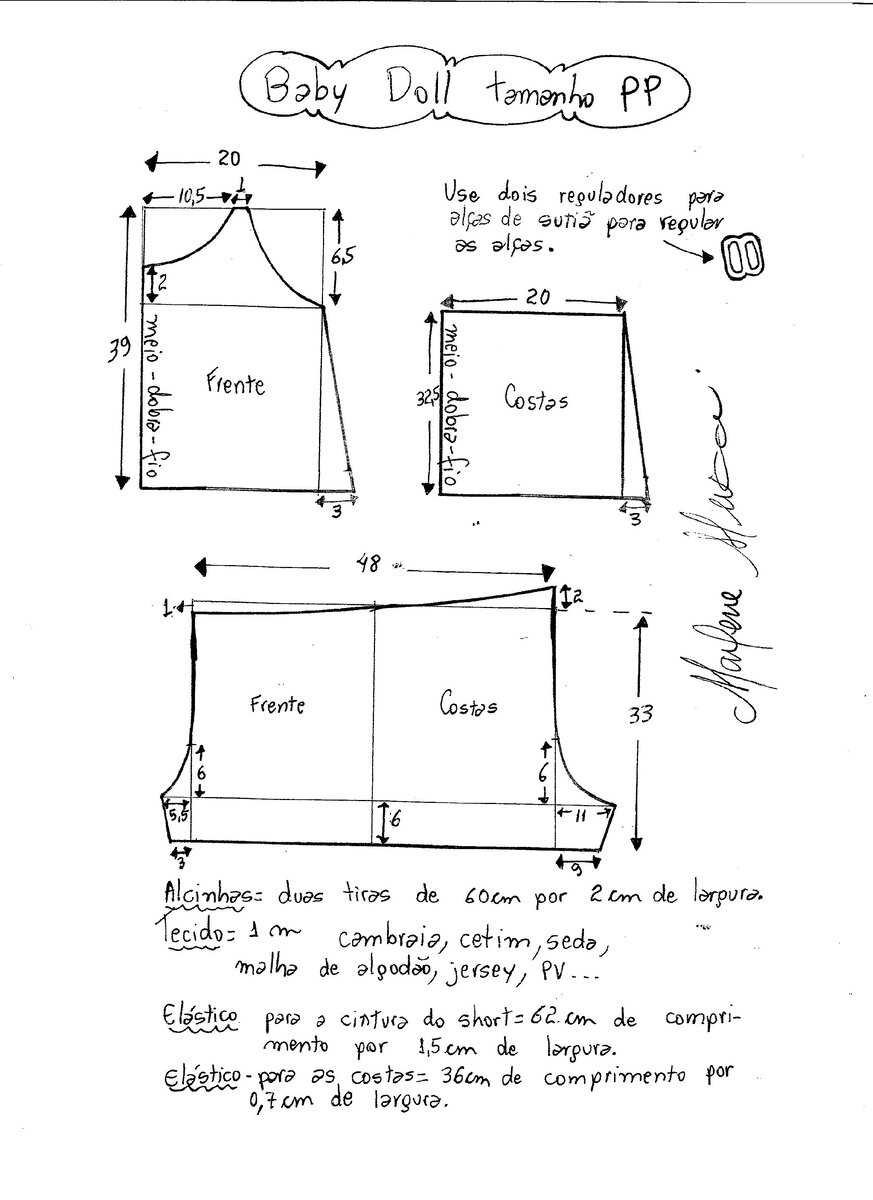 Baby Doll tamanho PP
20
10,5
1
Use dois reguladores para
alças de sutiã para regular
as alças.
6,5
2
39
meio-dobra-fio
Frente
3
20
32,5
meio-dobra-fio
Costas
3
Marlene Mukai
48
1
2
Frente
Costas
33
6
6
5,5
6
11
3
9
Alcinhas= duas tiras de 60cm por 2cm de largura.
Tecido= 1m cambraia, cetim, seda,
malha de algodão, jersey, PV...
Elástico para a cintura do short=62 cm de compri-
mento por 1,5cm de largura.
Elástico-para as costas= 36cm de comprimento por
0,7cm de largura.